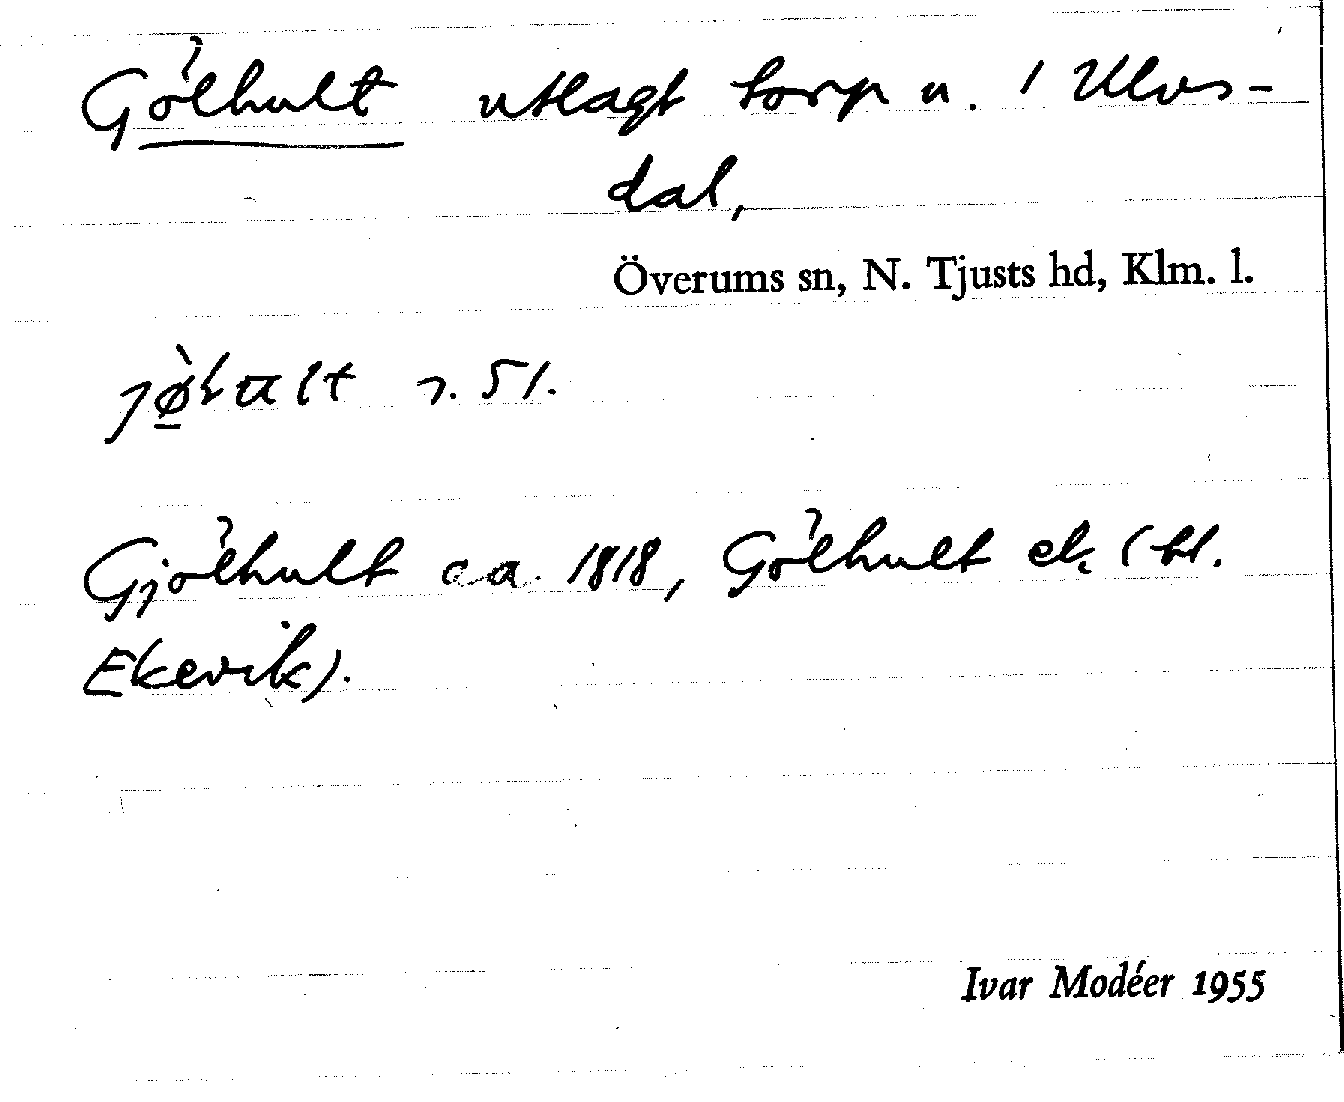 Gölhult utlagt torp u. 1 Ulvs-
dal,
Överums sn, N. Tjusts hd, Klm. l.
s. 51.
Gjölhult ca. 1818, Gölhult ek (bl.
Ekevik).
Ivar Modéer 1955